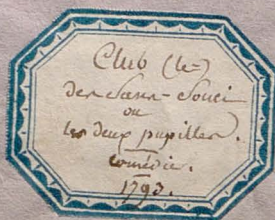 Club (le)
des Sans-Souci
ou
les deux pupilles.
comédie.
1793.